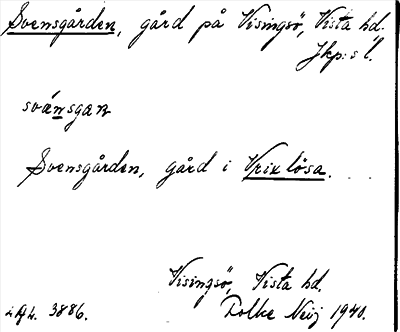 Svensgården, gård på Visingsö, Vista hd.
Jkp:s l.
svänsgaɳ
Svensgården, gård i Vrixlösa.
Visingsö, Vista hd.
3886. Folke Neij 1940.